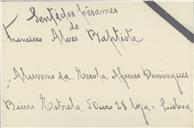 Sentidos Pêsames
de
Francisco Alves Baptista
Alumno da Escola Afonso Domingues
Bairro Estrela 28 loja - Lisboa